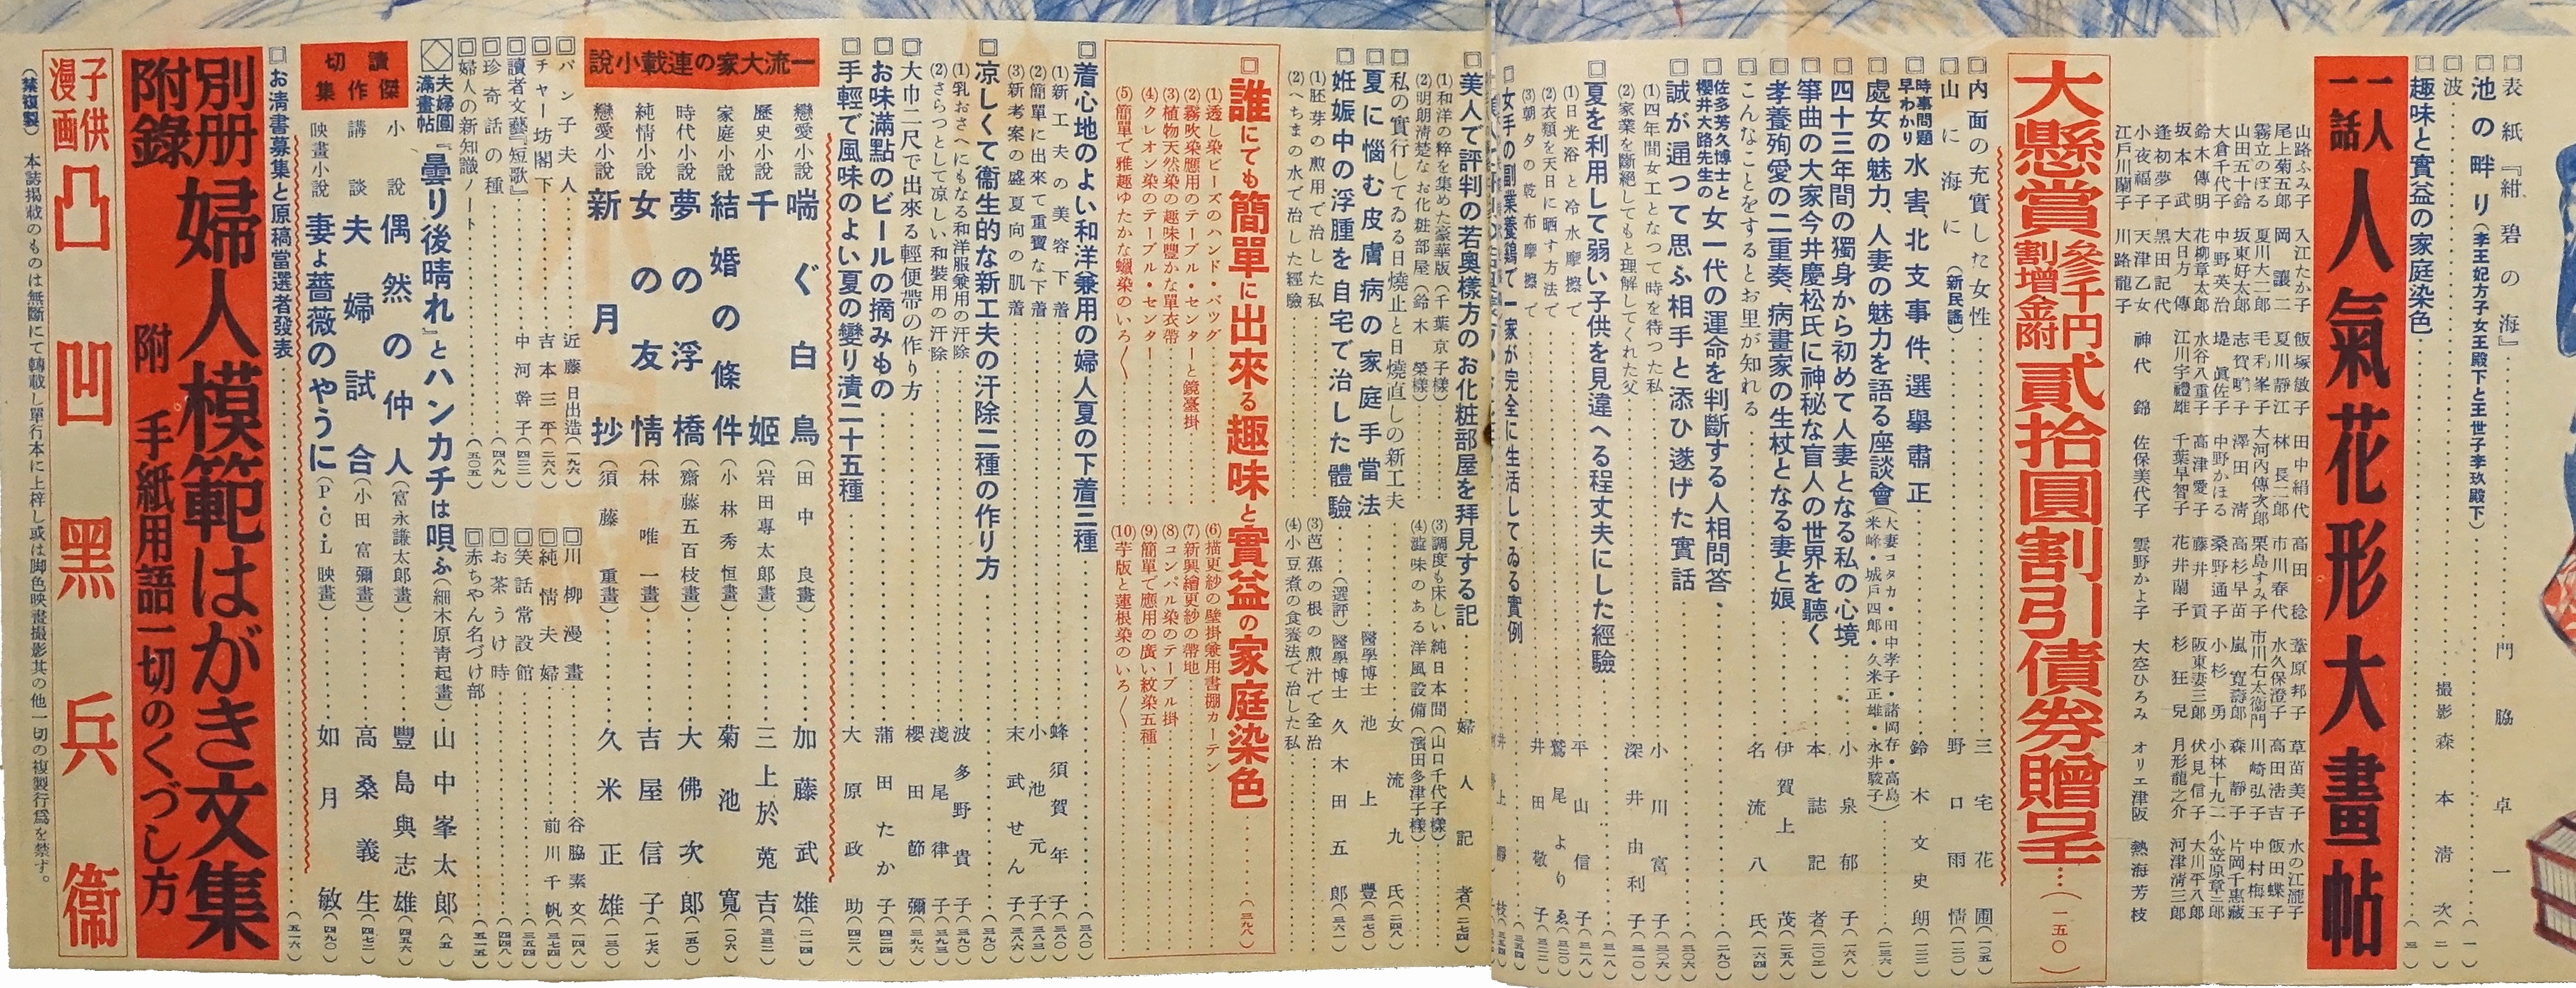 表紙『紺碧の海』……門脇卓一(一)
池の畔り(李王妃方子女王殿下と王世子李玖殿下)
波……撮影 森本清次(二)
趣味と實益の家庭染色……(三)
一人一話 人氣花形大畫帖
山路ふみ子 入江たか子 飯塚敏子 田中絹代 高田稔 葦原邦子 草苗美子 水の江瀧子
尾上菊五郎 岡讓二 夏川靜江 林長二郎 市川春代 水久保澄子 高田浩吉 飯田蝶子
霧立のぼる 夏川大二郎 毛利峯子 大河内傳次郎 栗島すみ子 市川右太衞門 川崎弘子 中村梅玉
山田五十鈴 坂東好太郎 志賀暁子 澤田淸 高杉早苗 嵐寬壽郎 森靜子 片岡千惠藏
大倉千代子 中野英治 堤眞佐子 中野かほる 桑野通子 小杉勇 小林十九二 小笠原章二郎
鈴木傳明 花柳章太郎 水谷八重子 高津愛子 藤井貢 阪東妻三郎 伏見信子 大川平八郎
坂本武 大日方傳 江川宇禮雄 千葉早智子 花井蘭子 杉狂兒 月形龍之介 河津淸三郎
逢初夢子 黑田記代
小夜福子 天津乙女 神代錦 佐保美代子 雲野かよ子 大空ひろみ オリエ津阪 熱海芳枝
江戸川蘭子 川路龍子
大懸賞 參千円割增金附 貳拾圓割引債券贈呈…(一五〇)
内面の充實した女性……三宅花圃(一〇五)
山に海に(新民謠)……野口雨情(一二〇)
時事問題早わかり 水害、北支事件、選擧肅正……鈴木文史朗(一三二)
處女の魅力、人妻の魅力を語る座談會(大妻コタカ・田中孝子・諸岡存・高島米峰・城戸四郎・久米正雄・永井駿子)……(二三六)
四十三年間の獨身から初めて人妻となる私の心境……小泉郁子(一六八)
箏曲の大家今井慶松氏に神秘な盲人の世界を聽く……本誌記者(二〇二)
孝養殉愛の二重奏、病畫家の生杖となる妻と娘……伊賀上茂(二五八)
こんなことをするとお里が知れる……名流八氏(一六四)
佐多芳久博士と櫻井大路先生の 女一代の運命を判斷する人相問答……(二九〇)
誠が通つて思ふ相手と添ひ遂げた實話……(三〇六)
(1)四年間女工となつて時を待つた私……小川富子(三〇六)
(2)家業を斷絕してもと理解してくれた父……深井由利子(三一〇)
夏を利用して弱い子供を見違へる程丈夫にした經驗……(三一八)
(1)日光浴と冷水摩擦で……平山信子(三一八)
(2)衣類を天日に晒す方法で……鷲尾よりゑ(三二〇)
(3)朝夕の乾布摩擦で……井田敬子(三二二)
女手の副業養鷄で一家が完全に生活してゐる實例……(三五四)
美人で評判の若奧樣方のお化粧部屋を拜見する記……婦人記者(二七四)
(1)和洋の粹を集めた豪華版(千葉京子樣)
(2)明朗淸楚なお化粧部屋(鈴木榮樣)
(3)調度も床しい純日本間(山口千代子樣)
(4)澁味のある洋風設備(濱田多津子樣)
私の實行してゐる日燒止と日燒直しの新工夫……女流九氏(二四八)
夏に惱む皮膚病の家庭手當法……醫學博士 池上豐(三七〇)
妊娠中の浮腫を自宅で治した體驗……(選評)醫學博士 久木田五郎(三六一)
(1)胚芽の煎用で治した私
(2)へちまの水で治した經驗
(3)芭蕉の根の煎汁で全治
(4)小豆煮の食養法で治した私
誰にでも簡單に出來る趣味と實益の家庭染色……(三九八)
(1)透し染ビーズのハンド・バッグ
(2)霧吹染應用のテーブル・センターと鏡臺掛
(3)植物天然染の趣味豐かな單衣帶
(4)クレオン染のテーブル・センター
(5)簡單で雅趣ゆたかな蠟染のいろ〱
(6)描更紗の壁掛兼用書棚カーテン
(7)新興繪更紗の帶地
(8)コンパル染のテーブル掛
(9)簡單で應用の廣い紋染五種
(10)芋版と蓮根染のいろ〱
着心地のよい和洋兼用の婦人夏の下着三種……(三八〇)
(1)新工夫の美容下着……蜂須賀年子(三八〇)
(2)簡單に出來て重寶な下着……小池元子(三八三)
(3)新考案の盛夏向の肌着……末武せん(三八六)
凉しくて衞生的な新工夫の汗除二種の作り方……(三九〇)
(1)乳おさへにもなる和洋服兼用の汗除……波多野貴子(三九〇)
(2)さらつとして凉しい和裝用の汗除……淺尾律子(三九三)
大巾二尺で出來る輕便帶の作り方……櫻田節彌(三九六)
お味滿點のビールの摘みもの……蒲田たか子(四二四)
手輕で風味のよい夏の變り漬二十五種……大原政助(四二八)
一流大家の連載小說
戀愛小說 喘ぐ白鳥(田中良畫)加藤武雄(二一四)
歷史小說 千姬(岩田專太郎畫)三上於菟吉(三三二)
家庭小說 結婚の條件(小林秀恒畫)菊池寬(一〇六)
時代小說 夢の浮橋(齋藤五百枝畫)大佛次郎(一五〇)
純情小說 女の友情(林唯一畫)吉屋信子(一七六)
戀愛小說 新月抄(須藤重畫)久米正雄(一三〇)
パン子夫人……近藤日出造(一九六)
チャー坊閣下……吉本三平(二六八)
讀者文藝『短歌』……中河幹子(四三二)
珍奇話の種……(四八九)
婦人の新知識ノート……(五〇五)
川柳漫畫……谷脇素文(一四八)
純情夫婦……前川千帆(三七四)
笑話常設館……(三五四)
お茶うけ時……(四四八)
赤ちやん名づけ部……(五一五)
夫婦圓滿畫帖『曇り後晴れ』とハンカチは唄ふ(細木原靑起畫)山中峯太郎(八五)
讀切傑作集
小說 偶然の仲人(富永謙太郎畫)豐島與志雄(四五六)
講談 夫婦試合(小田富彌畫)高桑義生(四七二)
映畫小說 妻よ薔薇のやうに(P・C・L映畫)如月敏(四九〇)
お淸書募集と原稿當選者發表……(五一六)
別册附錄 婦人模範はがき文集
附 手紙用語一切のくづし方
子供漫画 凸凹黑兵衞
(禁複製) 本誌揭載のものは無斷にて轉載し單行本に上梓し或は脚色映畫撮影其の他一切の複製行爲を禁ず。